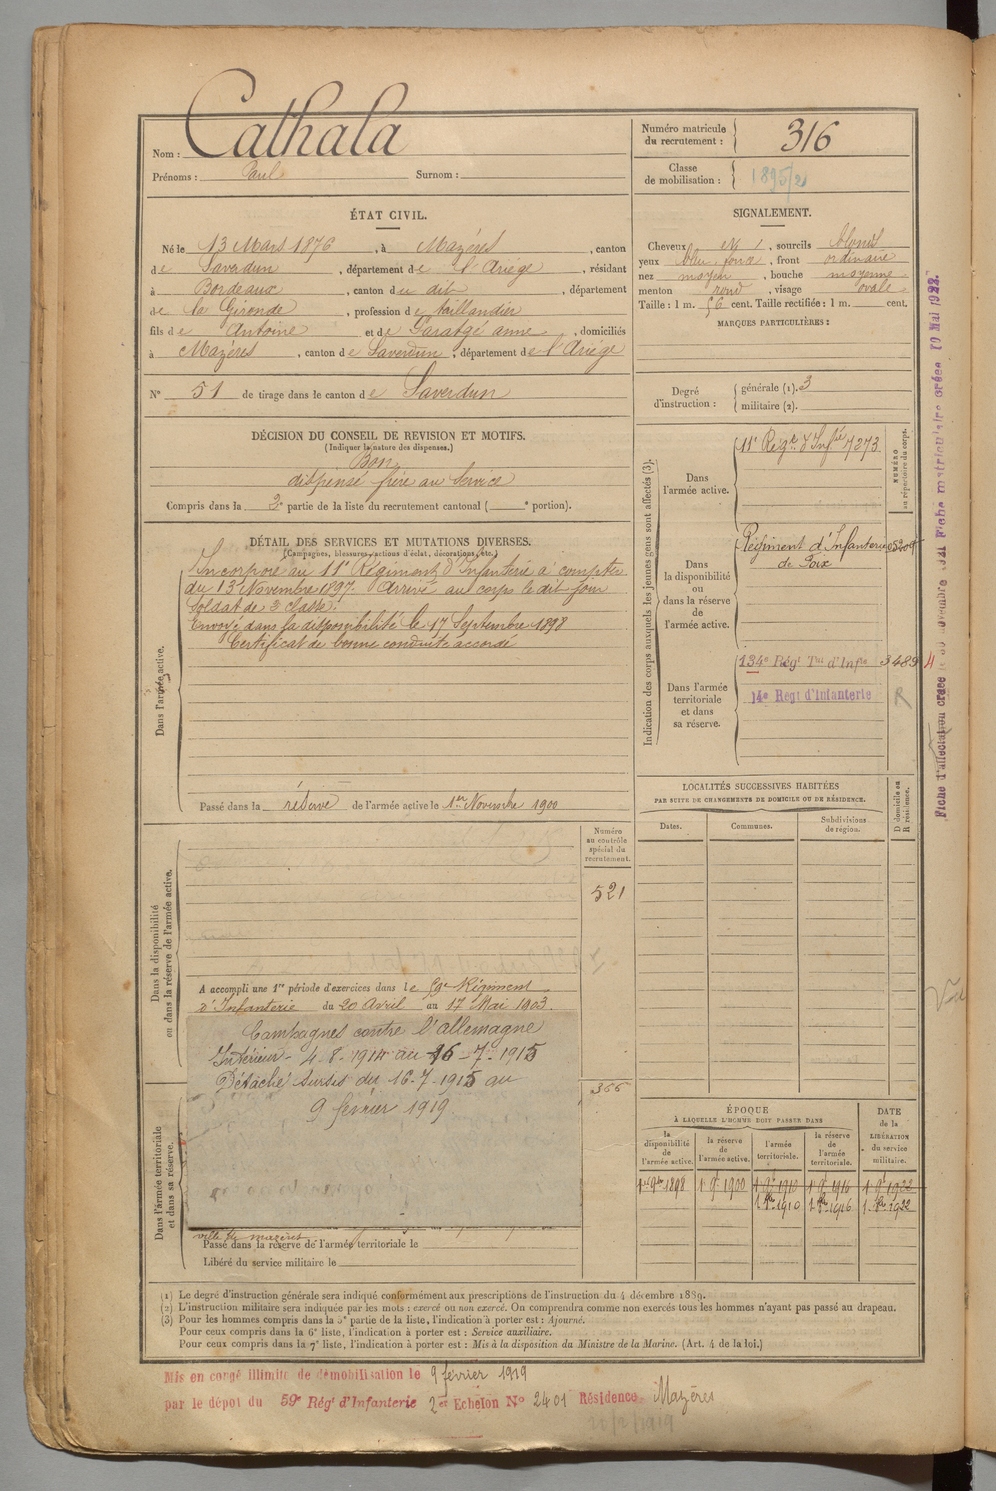 Nom : Cathala
Prénoms : Paul Surnom :
Numéro matricule du recrutement : 316
Classe de mobilisation : 1895/2
ÉTAT CIVIL.
Né le 13 Mars 1876, à Mazères, canton
de Saverdun, département de l'Ariège, résidant
à Bordeaux, canton du dit, département
de la Gironde, profession de taillandier
fils de Antoine et de Garatgé anne, domiciliés
à Mazères, canton de Saverdun, département de l'Ariège
N° 51 de tirage dans le canton de Saverdun
DÉCISION DU CONSEIL DE REVISION ET MOTIFS.
(Indiquer la nature des dispenses.)
Bon
dispensé frère au Service
Compris dans la 2e partie de la liste du recrutement cantonal ( e portion).
DÉTAIL DES SERVICES ET MUTATIONS DIVERSES.
(Campagnes, blessures, actions d'éclat, décorations, etc.)
Dans l'armée active.
Incorporé au 11e Régiment d'Infanterie à compter
du 13 Novembre 1897. Arrivé au corps le dit jour
Soldat de 2e classe.
Envoyé dans la disponibilité le 17 Septembre 1898
Certificat de bonne conduite accordé
Passé dans la réserve de l'armée active le 1er Novembre 1900
Dans la disponibilité
ou dans la réserve de l'armée active.
Numéro
au contrôle
spécial du
recrutement.
521
A accompli une 1re période d'exercices dans le 59e Régiment
d'Infanterie du 20 Avril au 17 Mai 1903.
Campagnes contre l'allemagne
Intérieur - 4-8-1914 au 16-7-1915
Détaché Sursis du 16-7-1915 au
9 février 1919
366
Dans l'armée territoriale
et dans sa réserve.
ville de mazères
Passé dans la réserve de l'armée territoriale le
Libéré du service militaire le
SIGNALEMENT.
Cheveux et, sourcils blonds
yeux bleu foncé, front ordinaire
nez moyen, bouche moyenne
menton rond, visage ovale
Taille : 1 m. 56 cent. Taille rectifiée : 1 m. cent.
MARQUES PARTICULIÈRES :
Degré d'instruction : générale (1). 3
militaire (2).
Indication des corps auxquels les jeunes gens sont affectés (3).
NUMÉRO
au répertoire du corps.
Dans
l'armée active.
11e Régt d'Infie 7273
Dans
la disponibilité
ou
dans la réserve
de
l'armée active.
Régiment d'Infanterie
de Foix
Dans l'armée
territoriale
et dans
sa réserve.
134e Régt Tal d'Infie 3489
14e Regt d'Infanterie R
LOCALITÉS SUCCESSIVES HABITÉES
PAR SUITE DE CHANGEMENTS DE DOMICILE OU DE RÉSIDENCE.
Dates. Communes. Subdivisions de région. D domicile ou R résidence.
ÉPOQUE
À LAQUELLE L'HOMME DOIT PASSER DANS
DATE
de la
LIBÉRATION
du service
militaire.
la disponibilité de l'armée active. la réserve de l'armée active. l'armée territoriale. la réserve de l'armée territoriale.
1er 9bre 1898 1er 9bre 1900 1er 9bre 1910 1er 9bre 1916 1er 9bre 1922
1er 8bre 1910 1er 8bre 1916 1er 8bre 1922
(1) Le degré d'instruction générale sera indiqué conformément aux prescriptions de l'instruction du 4 décembre 1889.
(2) L'instruction militaire sera indiquée par les mots : exercé ou non exercé. On comprendra comme non exercés tous les hommes n'ayant pas passé au drapeau.
(3) Pour les hommes compris dans la 5e partie de la liste, l'indication à porter est : Ajourné.
Pour ceux compris dans la 6e liste, l'indication à porter est : Service auxiliaire.
Pour ceux compris dans la 7e liste, l'indication à porter est : Mis à la disposition du Ministre de la Marine. (Art. 4 de la loi.)
Mis en congé illimité de démobilisation le 9 février 1919
par le dépôt du 59e Rég' d'Infanterie 2e Echelon N° 2401 Résidence Mazères
21/2/1919
Fiche d'affectation créée le 30 novembre 1921 Fiche matriculaire créée 19 Mai 1922.